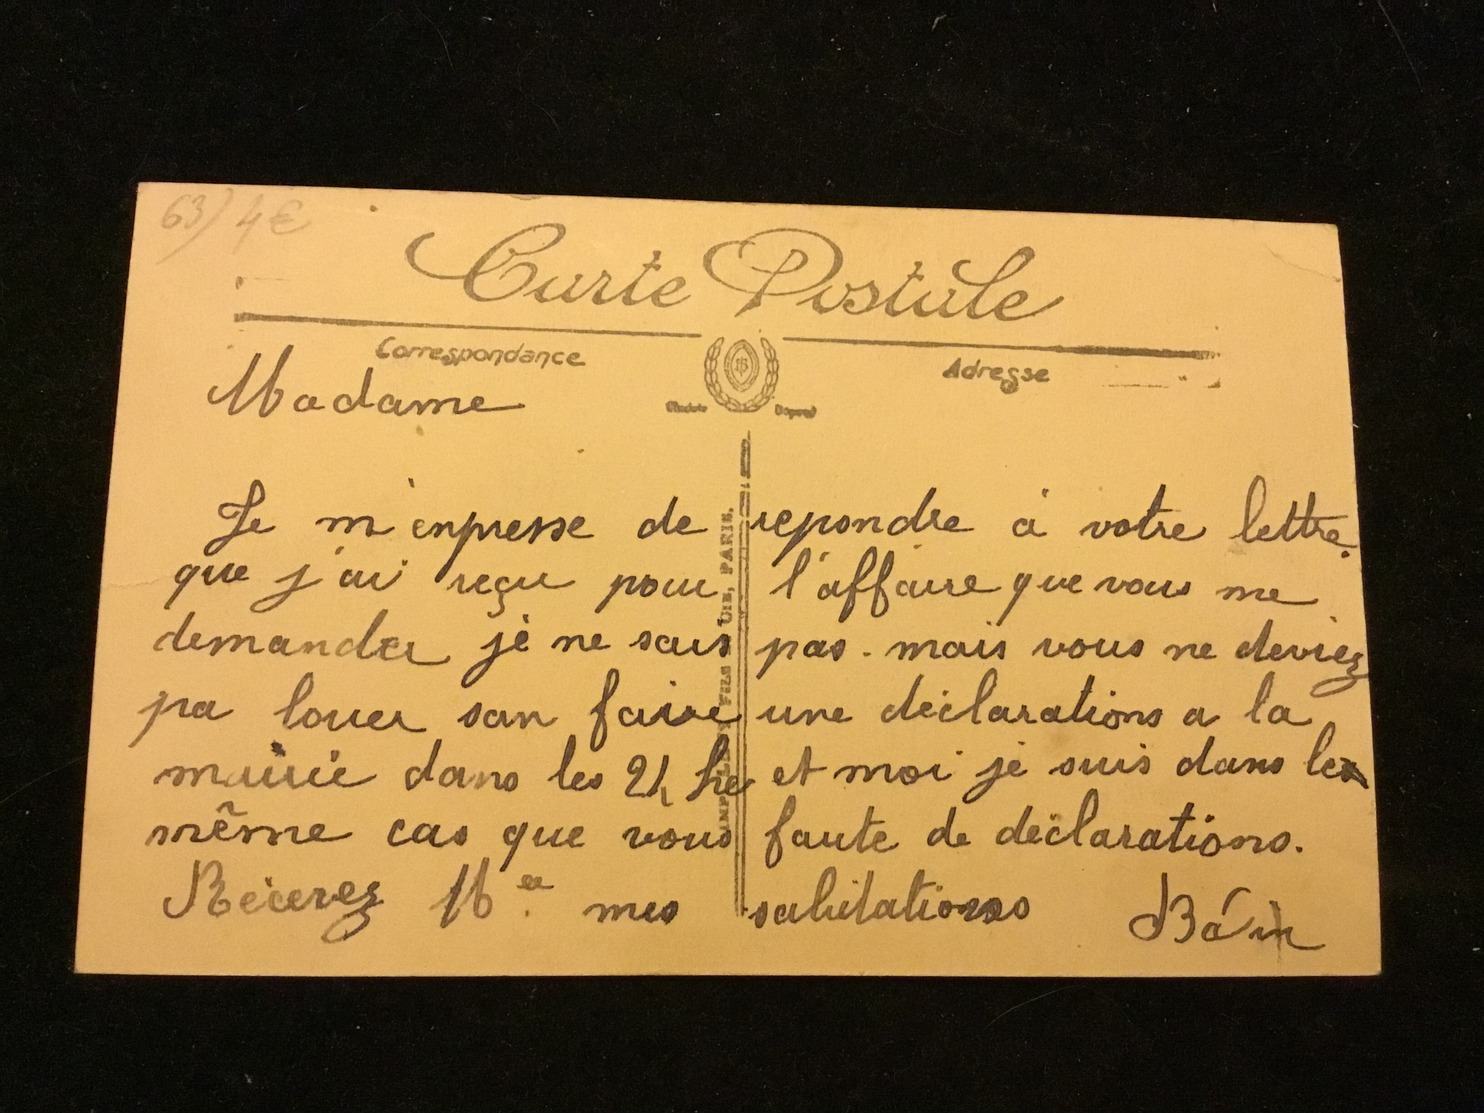 63) 4€
Carte Postale
Correspondance
Adresse
Madame
Je m'enpresse de repondre à votre lettre
que j'ai reçu pour l'affaire que vous me
demander je ne sais pas. mais vous ne deviez
pa louer san faire une déclarations a la
mairie dans les 24 hre et moi je suis dans les
même cas que vous faute de déclarations.
Recevez Mee mes salutations
FILS
PARIS.